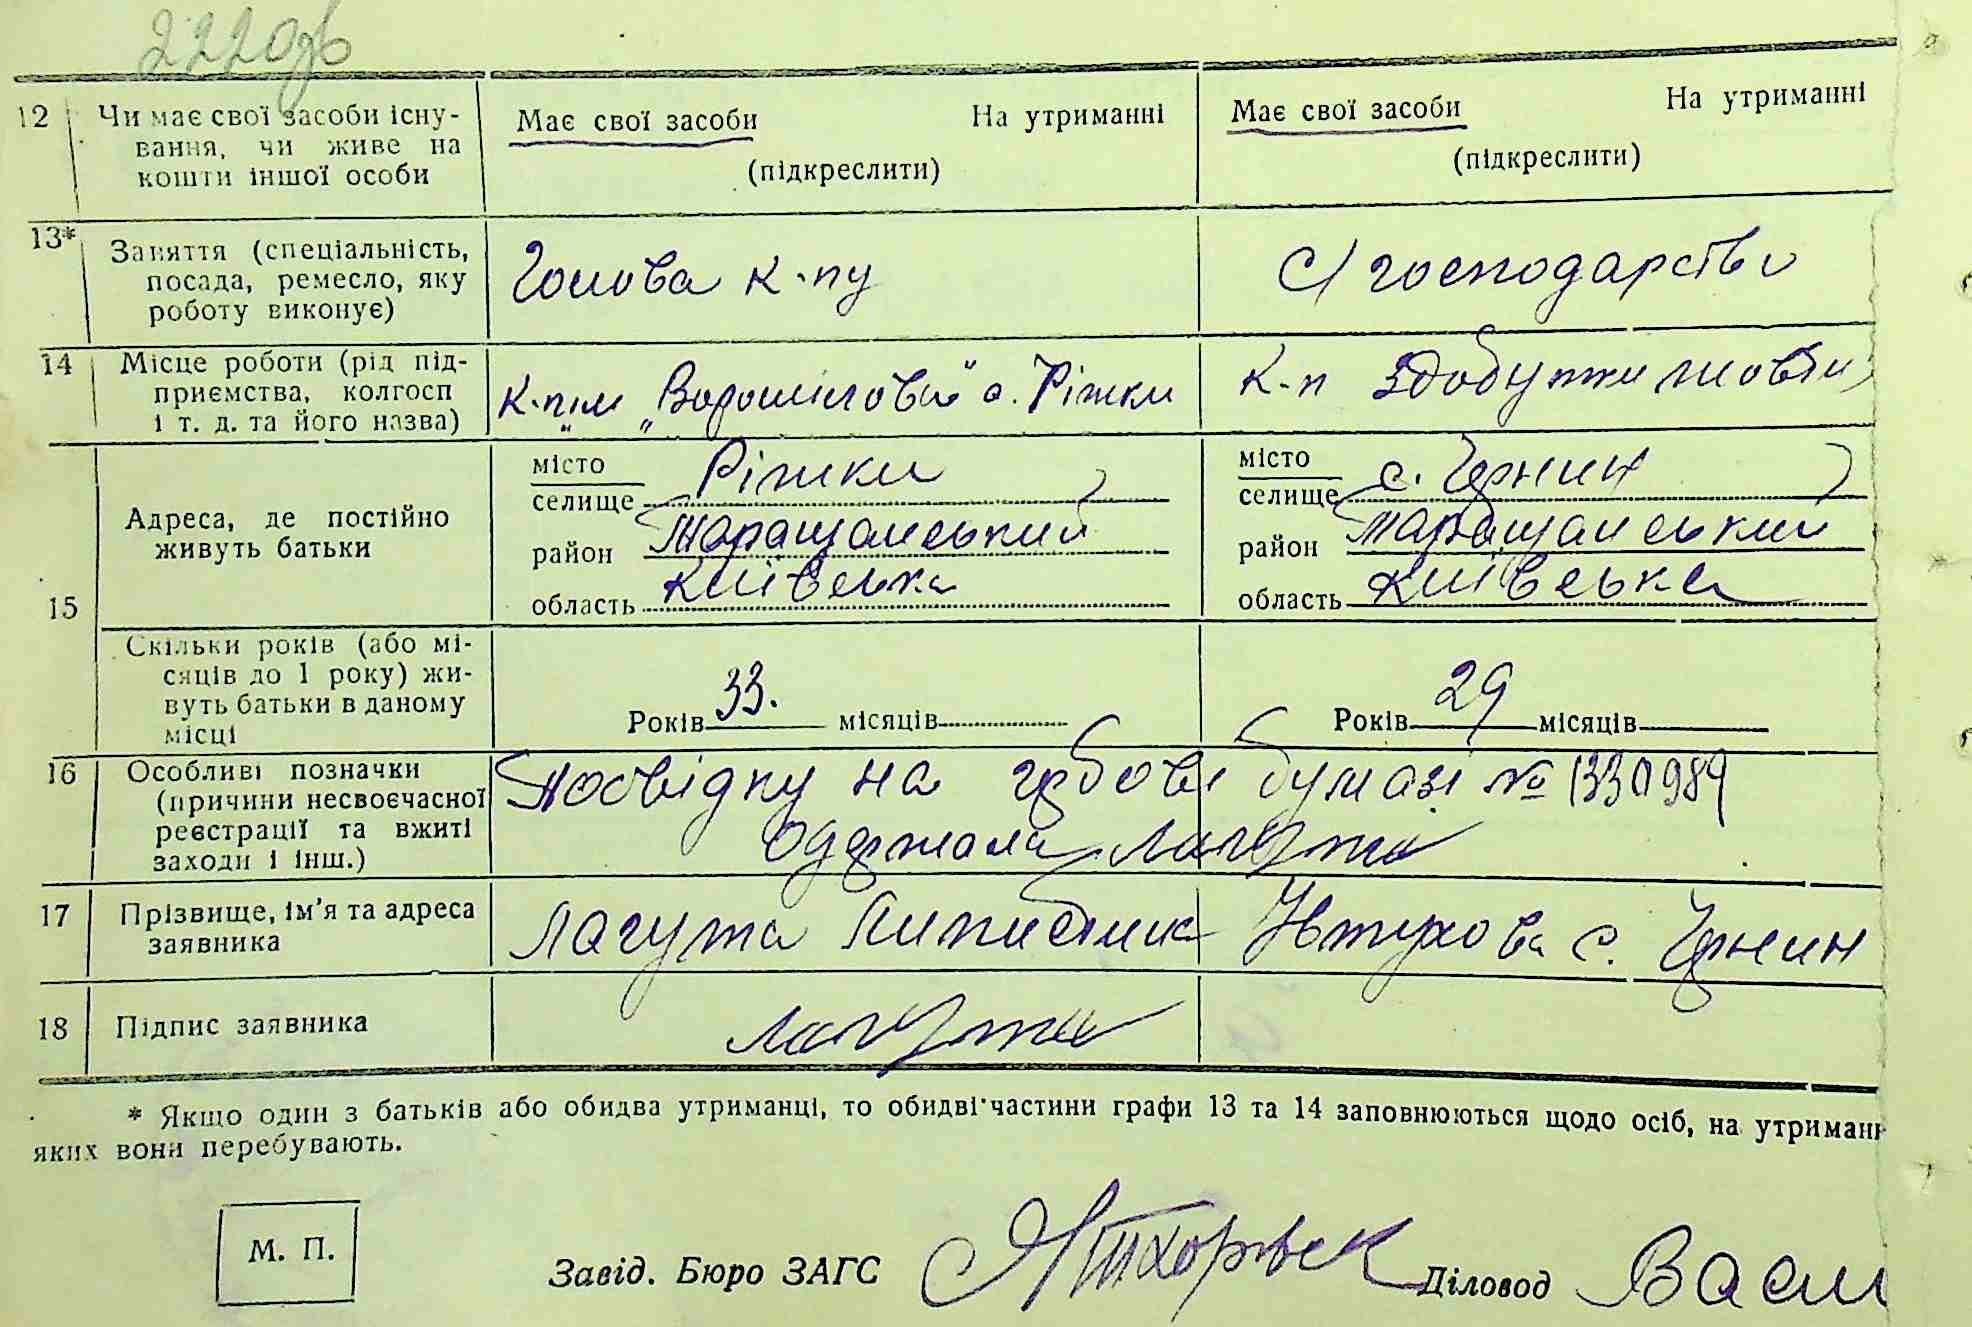 222 зв
12 Чи має свої засоби існу-
вання, чи живе на
кошти іншої особи
Має свої засоби На утриманні
(підкреслити)
Має свої засоби На утриманні
(підкреслити)
13* Заняття (спеціальність,
посада, ремесло, яку
роботу виконує)
Голова к-пу
С/господарство
14 Місце роботи (рід під-
приємства, колгосп
і т. д. та його назва)
к-п ім „Ворошилова" с. Ріжки
к-п Здобутки жовтн
15 Адреса, де постійно
живуть батьки
місто
селище Ріжки
район Таращанський
область Київська
місто
селище с. Чернин
район Таращанський
область Київська
Скільки років (або мі-
сяців до 1 року) жи-
вуть батьки в даному
місці
Років 33. місяців
Років 29 місяців
16 Особливі позначки
(причини несвоєчасної
реєстрації та вжиті
заходи і інш.)
Посвідку на гербові бумазі № 1330989
Одержала Лагута
17 Прізвище, ім'я та адреса
заявника
Лагута с. Чернин
18 Підпис заявника
Лагута
* Якщо один з батьків або обидва утриманці, то обидві частини графи 13 та 14 заповнюються щодо осіб, на утриманн
яких вони перебувають.
М. П.
Завід. Бюро ЗАГС
Діловод Васил